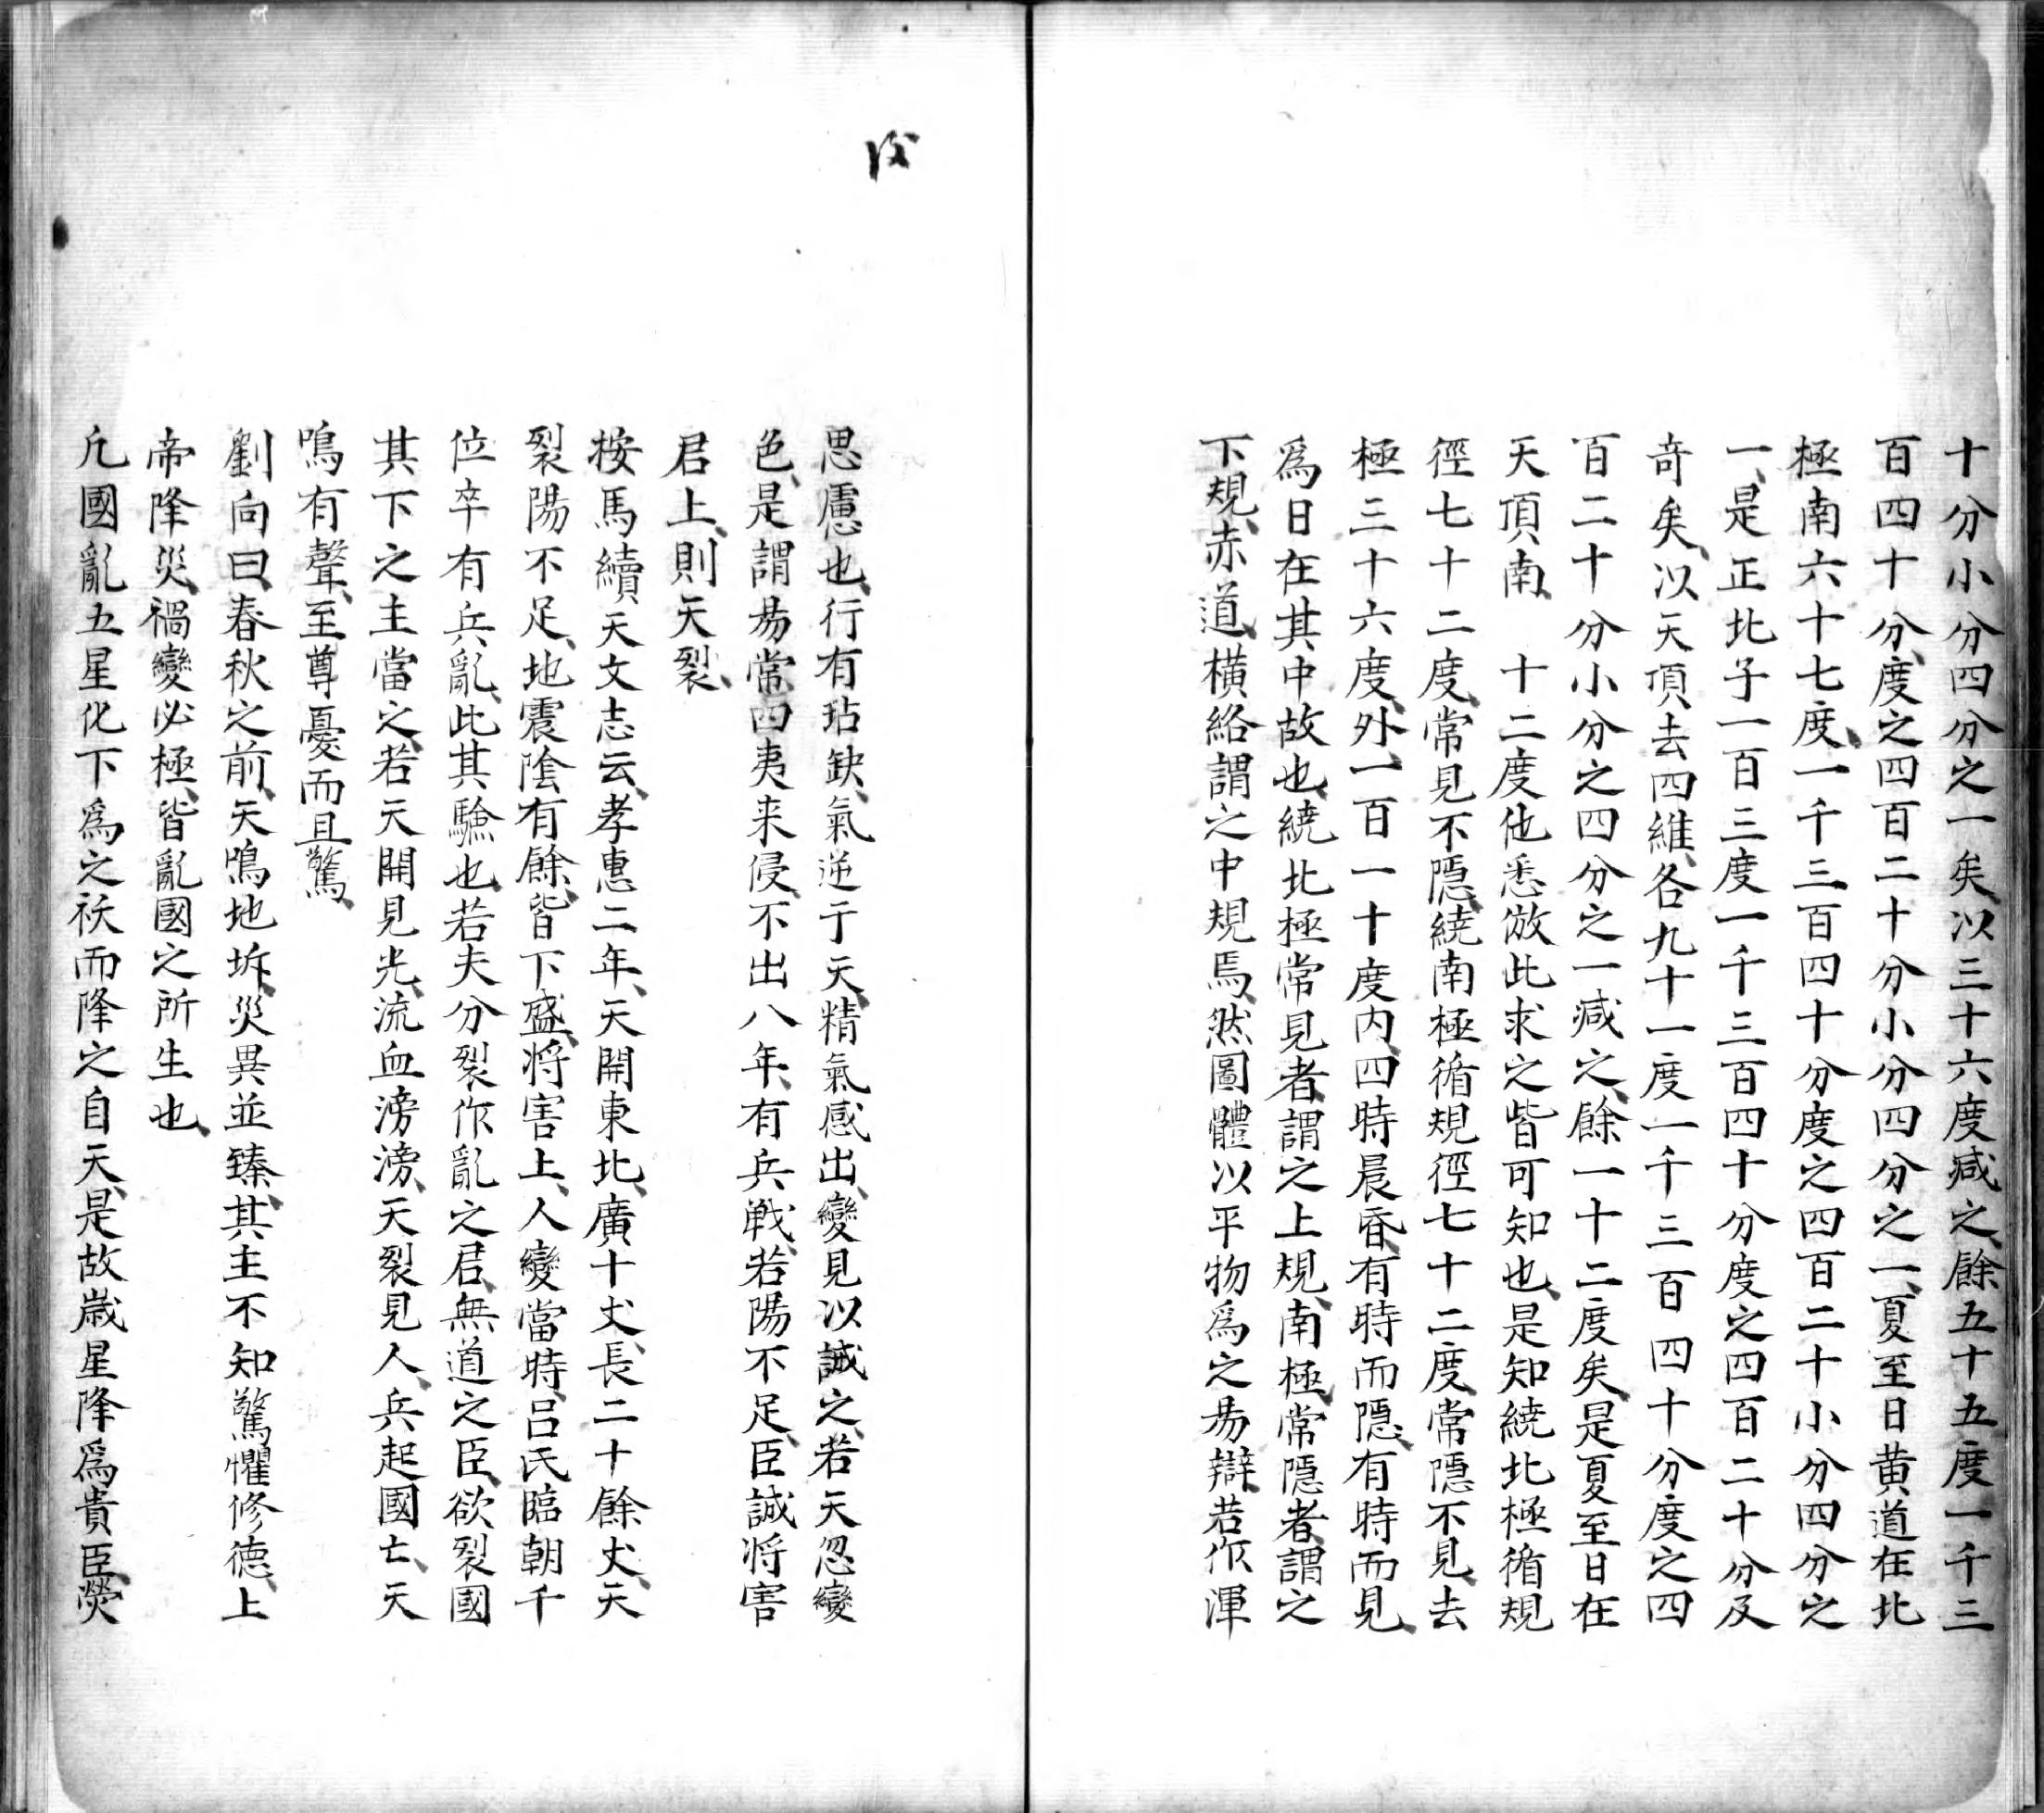 十分小分四分之一矣以三十六度減之餘五十五度一千三
百四十分度之四百二十分小分四分之一夏至日黄道在北
極南六十七度一千三百四十分度之四百二十小分四分之
一是正北子一百三度一千三百四十分度之四百二十分及
奇矣以天頂去四維各九十一度一千三百四十分度之四
百二十分小分之四分之一減之餘一十二度矣是夏至日在
天頂南　十二度他悉倣此求之皆可知也是知繞北極循規
徑七十二度常見不隱繞南極循規徑七十二度常隱不見去
極三十六度外一百一十度内四時晨昏有時而隱有時而見
爲日在其中故也繞北極常見者謂之上規南極常隱者謂之
下規赤道橫絡謂之中規焉然圖體以平物爲之昜辯若作渾
思慮也行有玷缺氣逆于天精氣感出變見以誡之若天忽變
色是謂昜常四夷来侵不出八年有兵戦若陽不足臣誠将害
君上則天裂
按馬續天文志云孝惠二年天開東北廣十丈長二十餘丈天
裂陽不足地震陰有餘皆下盛将害上人變當時吕氏臨朝千
位卒有兵亂此其驗也若夫分裂作亂之君無道之臣欲裂國
其下之主當之若天開見光流血滂滂天裂見人兵起國亡天
鳴有聲至尊憂而且驚
劉向曰春秋之前天鳴地坼災異並臻其主不知驚懼修德上
帝降災禍變必極皆亂國之所生也
凢國亂五星化下爲之袄而降之自天是故歳星降爲貴臣熒